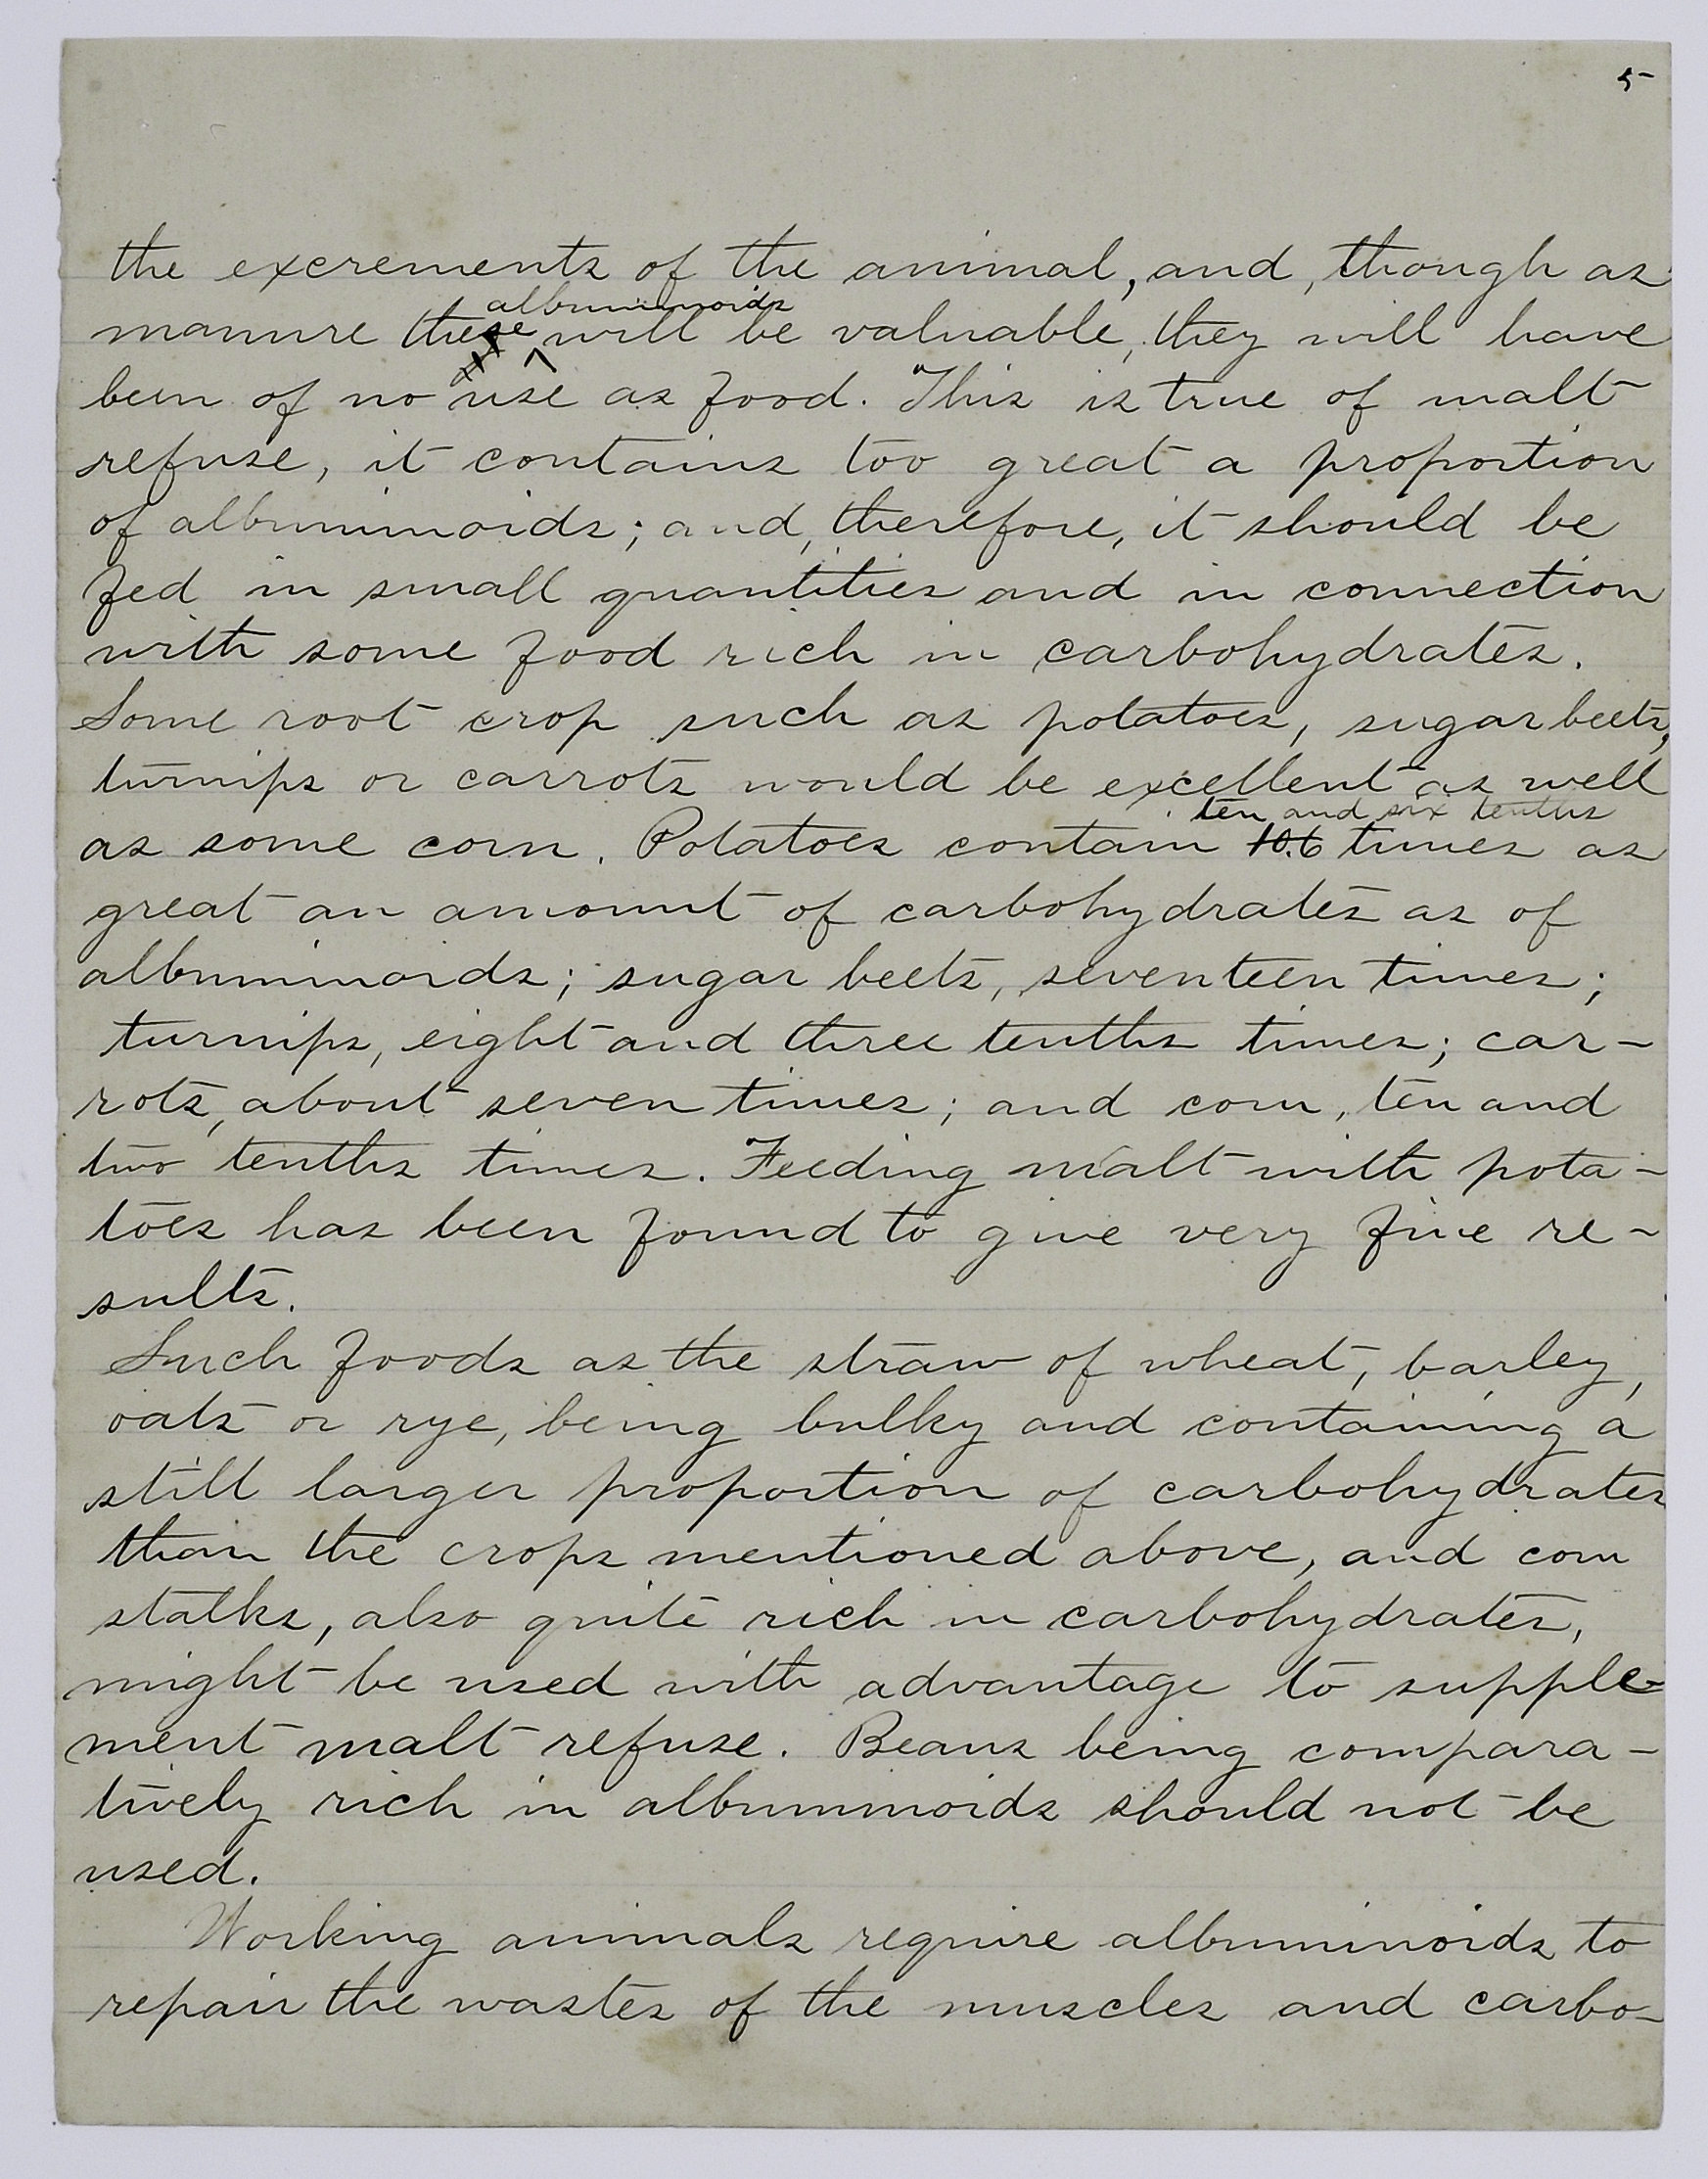 5
the excrements of the animal, and, though as
albuminoids
manure these will be valuable, they will have
been of no use as food. This is true of malt
refuse, it contains too great a proportion
of albuminoids; and, therefore, it should be
fed in small quantities and in connection
with some food rich in carbohydrates.
Some root crop such as potatoes, sugar beets,
turnips or carrots would be excellent as well
ten and six tenths
as some corn. Potatoes contain 10.6 times as
great an amount of carbohydrates as of
albuminoids; sugar beets, seventeen times;
turnips, eight and three tenths times; car-
rots, about seven times; and corn, ten and
two tenths times. Feeding malt with pota-
toes has been found to give very fine re-
sults.
Such foods as the straw of wheat, barley,
oats or rye, being bulky and containing a
still larger proportion of carbohydrates
than the crops mentioned above, and corn
stalks, also quite rich in carbohydrates,
might be used with advantage to supple-
ment malt refuse. Beans being compara-
tively rich in albuminoids should not be
used.
Working animals require albuminoids to
repair the wastes of the muscles and carbo-